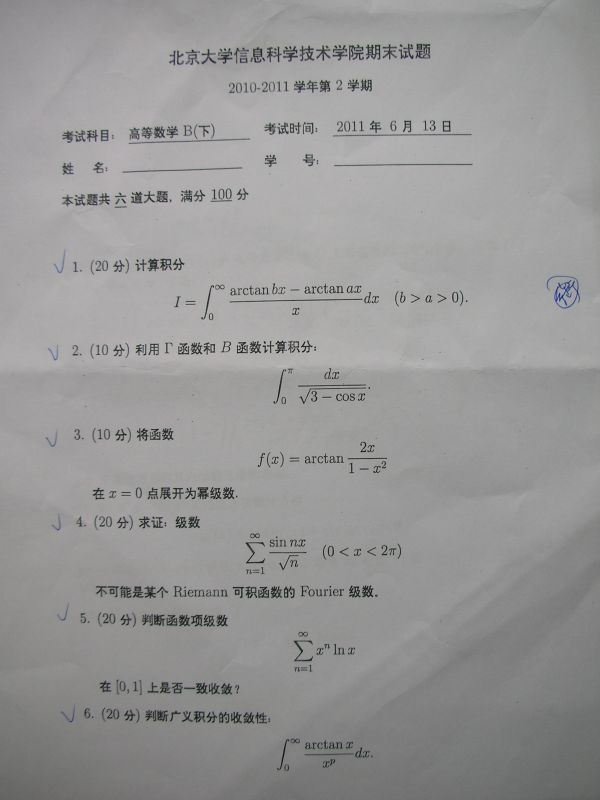 北京大学信息科学技术学院期末试题
2010-2011 学年第 2 学期
考试科目: 高等数学 B(下) 考试时间: 2011 年 6 月 13 日
姓 名: 学 号:
本试题共 六 道大题, 满分 100 分
1. (20 分) 计算积分
I = ∫₀^∞ (arctan bx − arctan ax)/x dx (b > a > 0).
2. (10 分) 利用 Γ 函数和 B 函数计算积分:
∫₀^π dx/√(3 − cos x).
3. (10 分) 将函数
f(x) = arctan 2x/(1 − x²)
在 x = 0 点展开为幂级数.
4. (20 分) 求证: 级数
∑_{n=1}^∞ sin nx/√n (0 < x < 2π)
不可能是某个 Riemann 可积函数的 Fourier 级数.
5. (20 分) 判断函数项级数
∑_{n=1}^∞ xⁿ ln x
在 [0,1] 上是否一致收敛?
6. (20 分) 判断广义积分的收敛性:
∫₀^∞ arctan x/x^p dx.